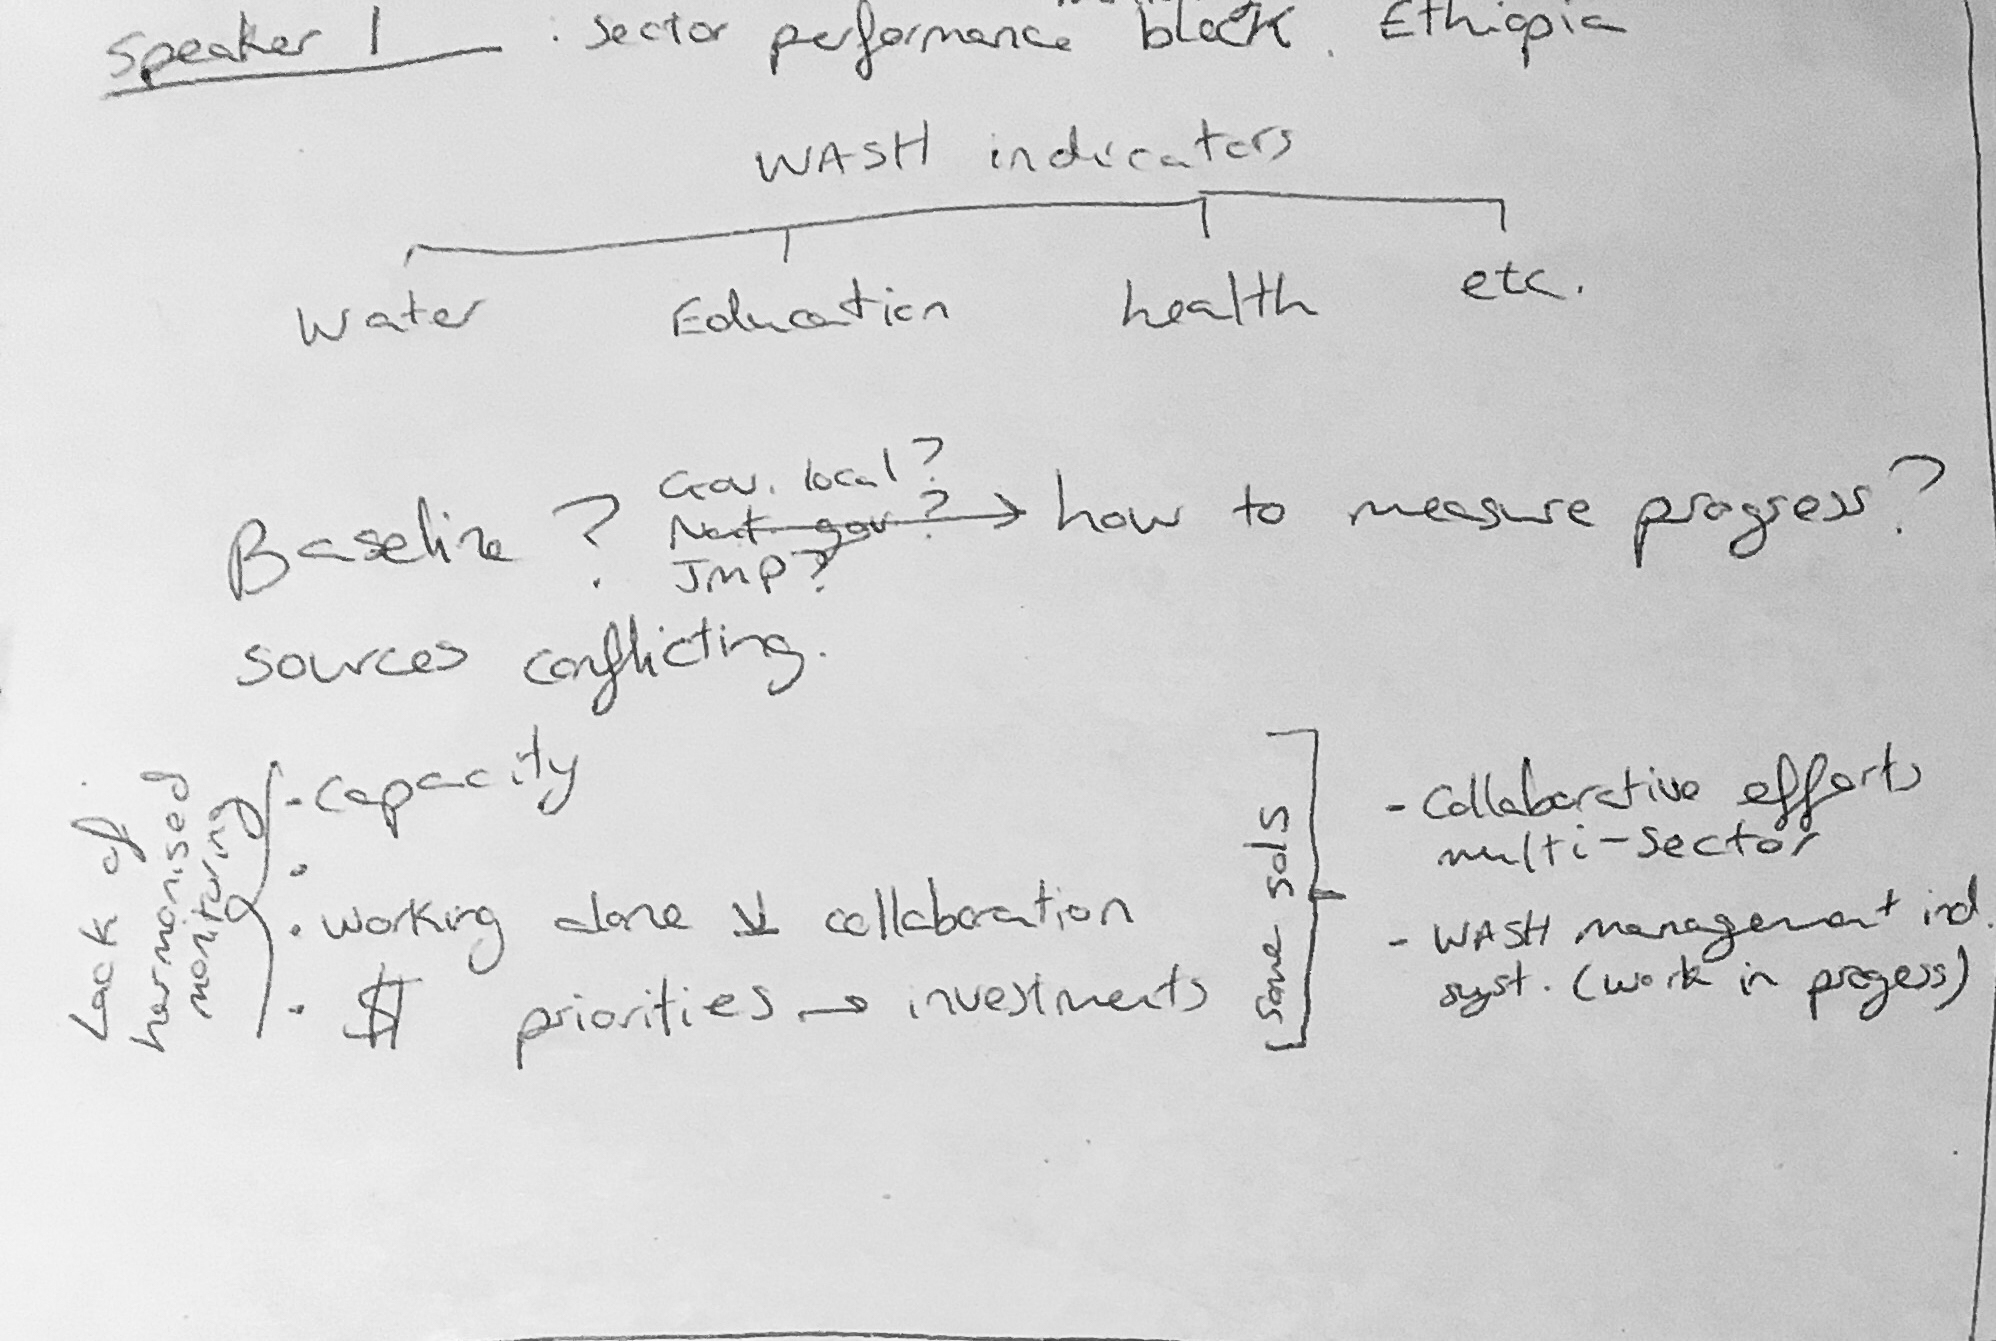 Speaker 1 : sector performance block. Ethiopia
WASH indicators
Water Education health etc.
Gov. local?
Baseline ? Nat gov ? → how to measure progress?
JMP?
sources conflicting.
Lack of
harmonised
monitoring
- capacity
•
• working alone ↓ collaboration
• $ priorities → investments
some sols
- Collaborative efforts
multi-sector
- WASH management ind.
syst. (work in progess)